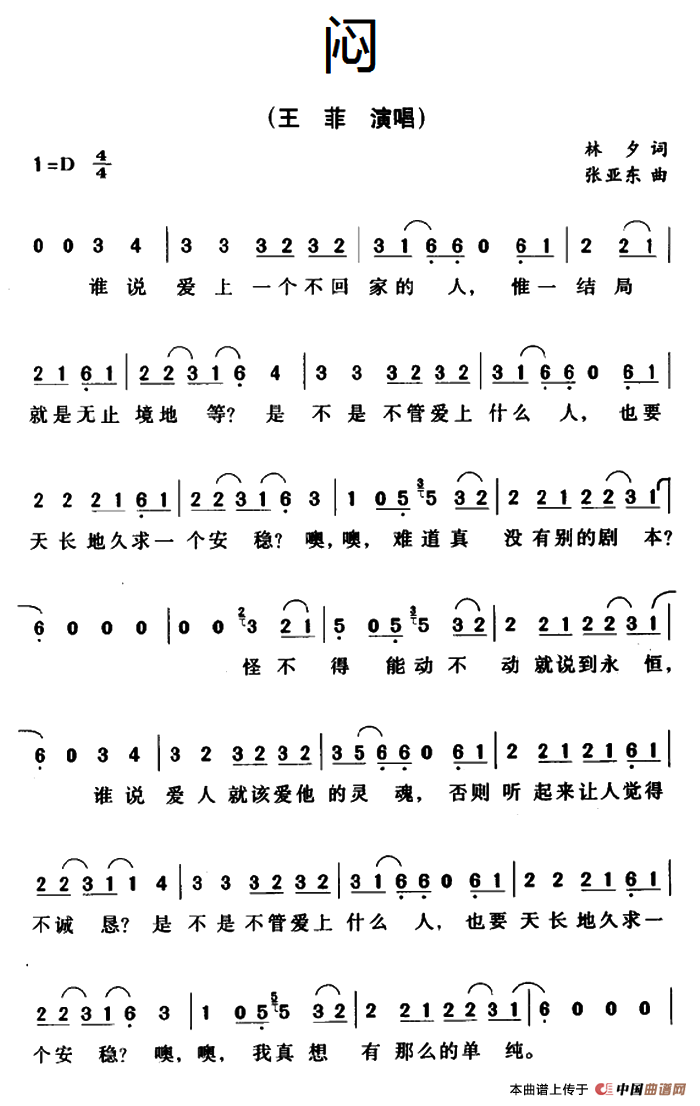 闷
(王 菲 演唱)
1=D 4/4
林 夕 词
张亚东 曲
0 0 3 4 | 3 3 3 2 3 2 | 3 1 6 6 0 6 1 | 2 2 1 |
谁 说 爱 上 一个不回 家的 人, 惟一 结 局
2 1 6 1 | 2 2 3 1 6 4 | 3 3 3 2 3 2 | 3 1 6 6 0 6 1 |
就是无止 境地 等? 是 不 是 不管爱上 什么 人, 也要
2 2 2 1 6 1 | 2 2 3 1 6 3 | 1 0 5 3 5 3 2 | 2 2 1 2 2 3 1 |
天 长 地久求一 个安 稳? 噢, 噢, 难道真 没有别的剧 本?
6 0 0 0 | 0 0 2 3 2 1 | 5 0 5 3 5 3 2 | 2 2 1 2 2 3 1 |
怪 不 得 能动 不 动 就说到永 恒,
6 0 3 4 | 3 2 3 2 3 2 | 3 5 6 6 0 6 1 | 2 2 1 2 1 6 1 |
谁 说 爱 人 就该爱他 的灵 魂, 否则 听 起来让人觉得
2 2 3 1 1 4 | 3 3 3 2 3 2 | 3 1 6 6 0 6 1 | 2 2 2 1 6 1 |
不诚 恳? 是 不 是 不管爱上 什么 人, 也要 天 长 地久求一
2 2 3 1 6 3 | 1 0 5 5 5 3 2 | 2 2 1 2 2 3 1 | 6 0 0 0 |
个安 稳? 噢, 噢, 我真 想 有 那么的单 纯。
本曲谱上传于 中国曲谱网